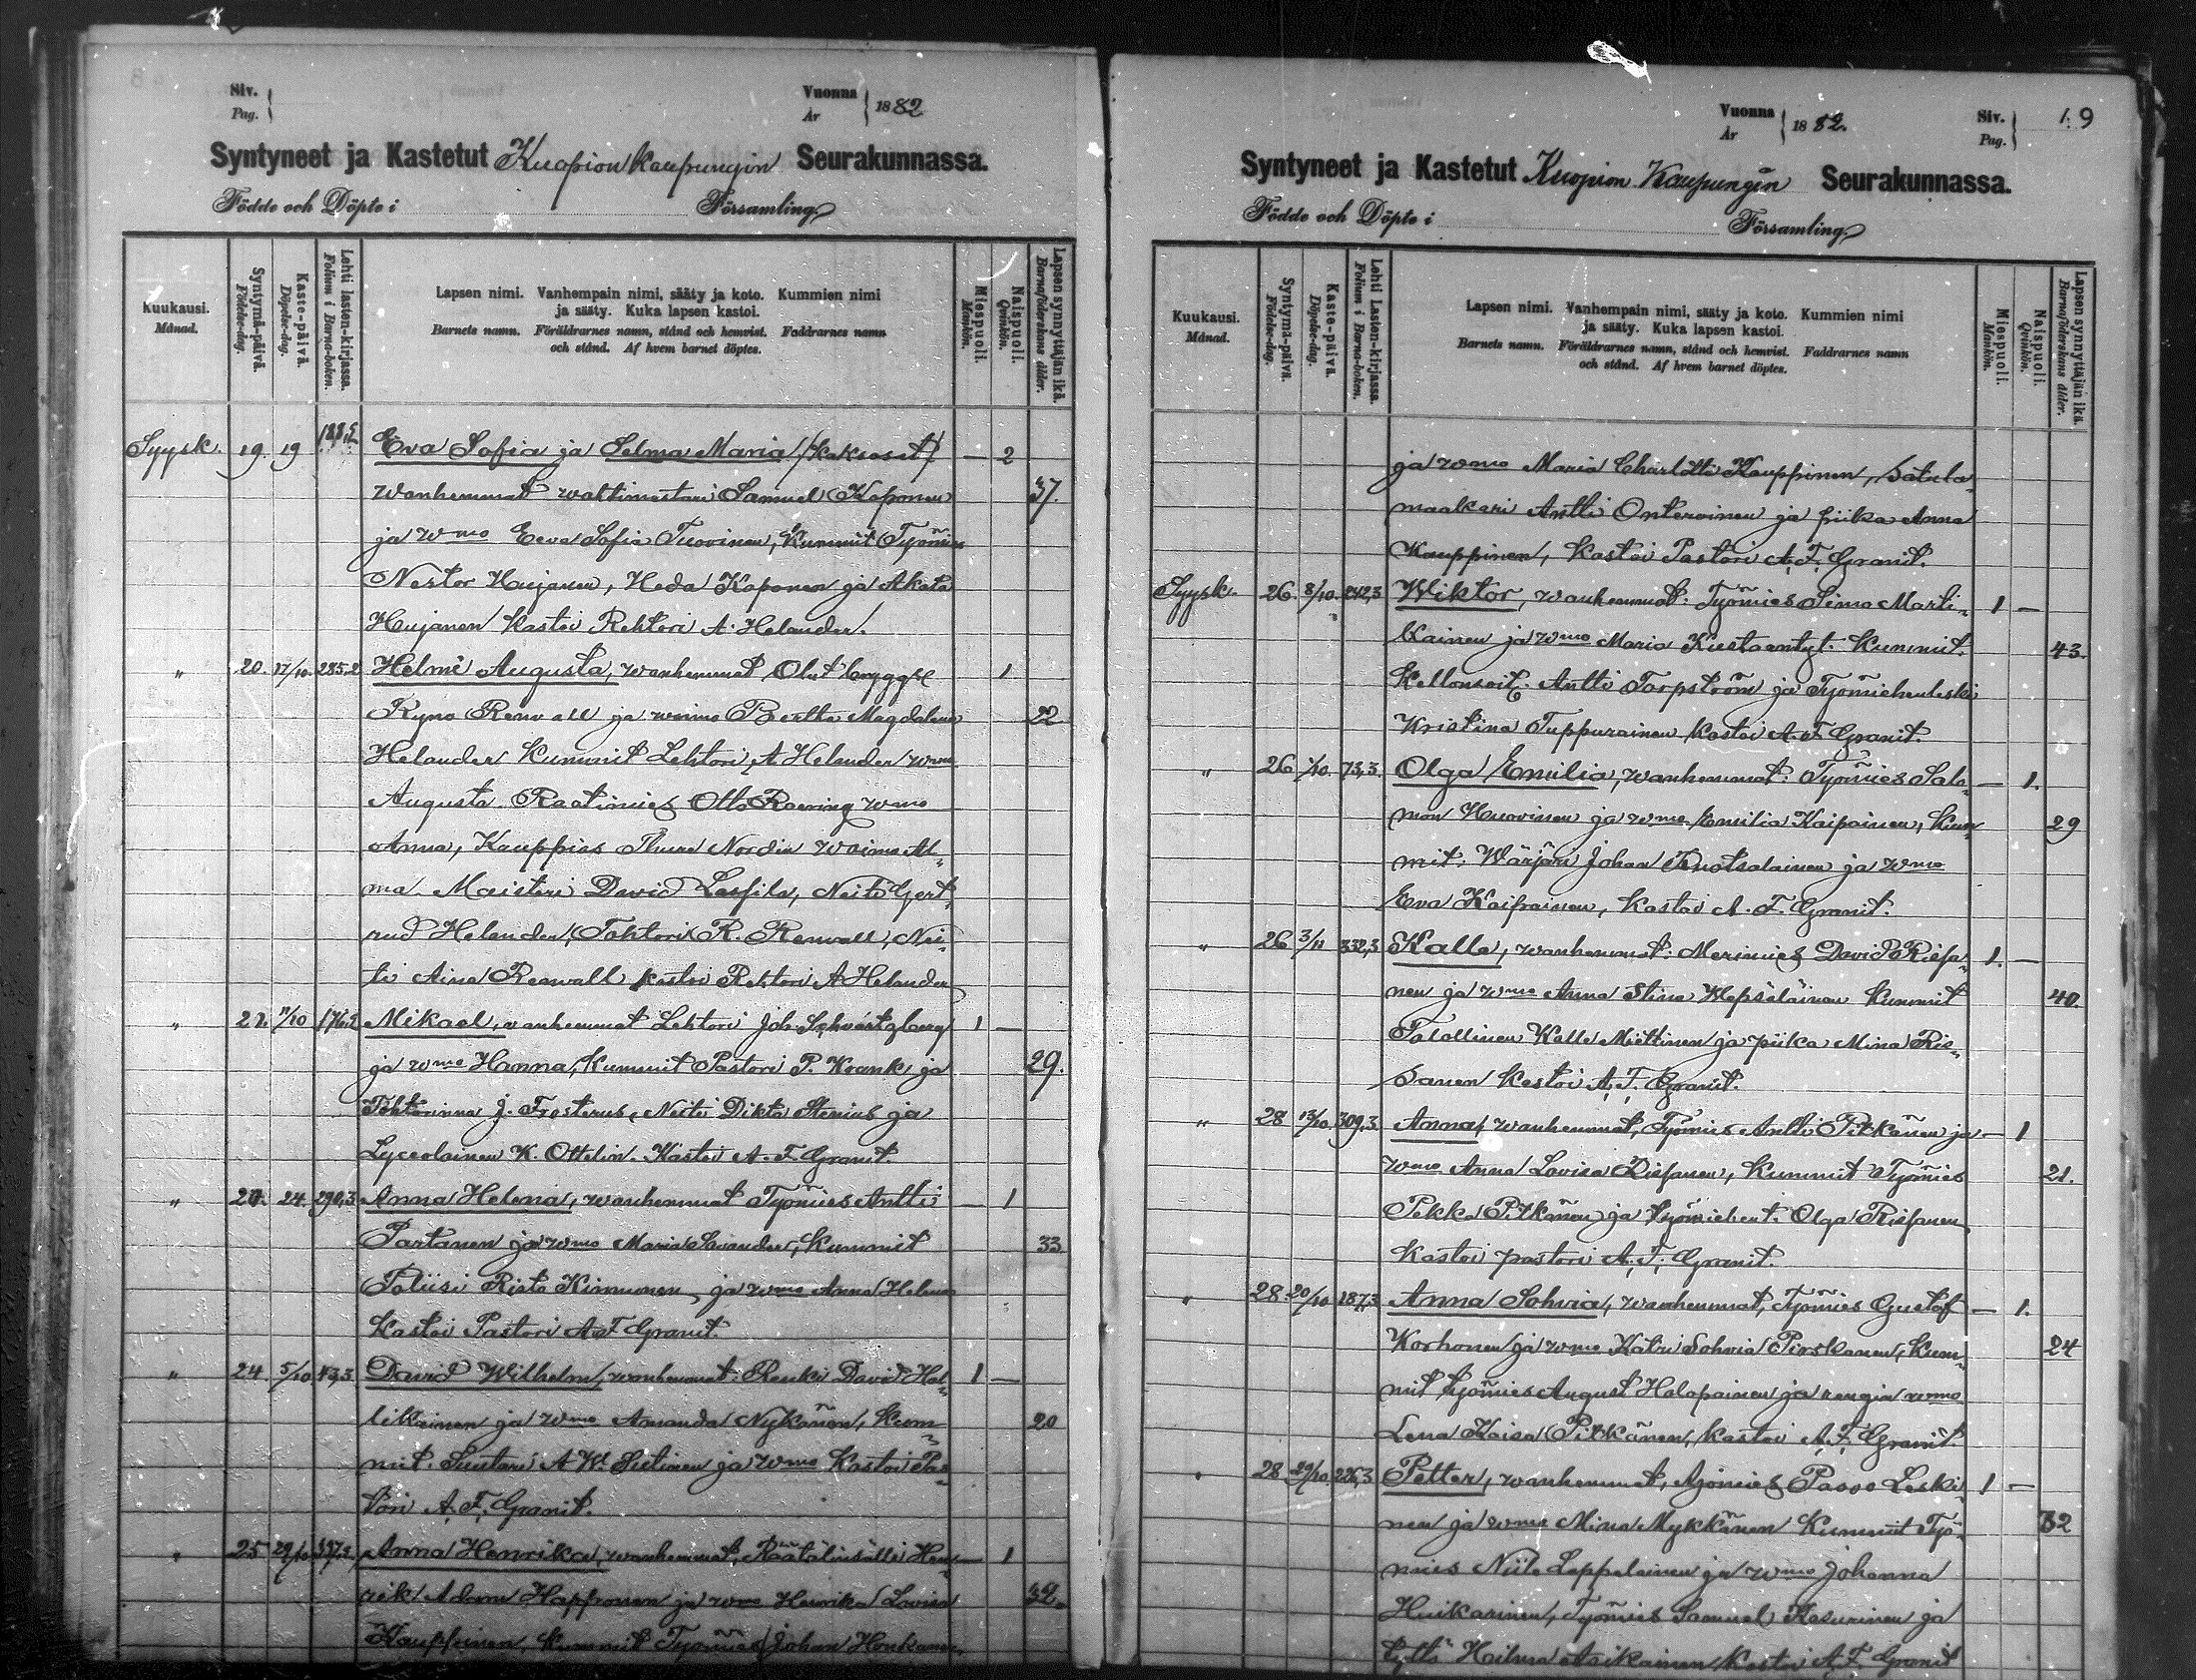 Siv.
Pag.
Vuonna
År
1882
Syntyneet ja Kastetut Kuopion kaupungin Seurakunnassa.
Födde och Döpte i Församling
Kuukausi.
Månad.
Syntymä-päivä.
Födelse-dag.
Kaste-päivä.
Döpelse-dag.
Lehti lasten-kirjassa.
Folium i Barna-boken.
Lapsen nimi. Vanhempain nimi, sääty ja koto. Kummien nimi
ja sääty. Kuka lapsen kastoi.
Barnets namn. Föräldrarnes namn, stånd och hemvist. Faddrarnes namn
och stånd. Af hvem barnet döptes.
Miespuoli.
Mankön.
Naispuoli.
Qvinkön.
Lapsen synnyttäjän ikä.
Barnaföderskans ålder.
Syysk. 19. 19 Eva Sofia ja Selma Maria /kaksoset/ — 2
wanhemmat wahtimestari Samuel Kaponen 37.
ja wmo Eeva Sofia Tuovinen, Kummit Työmies
Nestor Hujanen, Heda Kaponen ja Akata
Hujanen Kastoi Rehtori A. Helander.
" 20. 17/10. 285.2 Helmi Augusta, wanhemmat Olut
Renvall ja waimo Bertha Magdalena 22
Helander Kummit Lehtori A Helander wmo
Augusta Raatimies Otto Roering wmo
Anna, Kauppias Thure Nordin Waimo Al-
ma Maisteri David Lasfila, Neito Gert-
rud Helander, Tohtori R. Renvall, Nei-
ti Aina Renvall kastoi Rehtori A Helander
" /10 Mikael, wanhemmat Lehtori Joh. Schvartzberg 1 —
ja wmo Hanna, Kummit Pastori P. Krank ja 29.
Tohtorinna J. Frosterus, Neiti Dikta Stenius ja
Lyceolainen K. Ottelin. Kastoi A. F. Granit.
" 24. 290,3 Anna Helena, wanhemmat Työmies Antti — 1
Partanen ja wmo Maria Savander, Kummit 33
Poliisi Risto Kinnunen ja wmo Anna Helena
Kastoi Pastori A. F Granit.
" 24. 5/10 43,3 David Wilhelm, wanhemmat: Renki David Hal- 1 —
likainen ja wmo Amanda Nykänen, Kum- 20
mit. Suutari A W. Sutinen ja wmo Kastoi Pas-
tori A. F. Granit.
" 25 29/10 Anna Henrika, wanhemmat, Räätälinsälli Hen- — 1
rik Adam Happonen ja wmo Henrika Lovisa 32.
Kauppinen, Kummit Työmies Johan Honkanen
Vuonna
År
1882.
Siv.
Pag.
19
Syntyneet ja Kastetut Kuopion Kaupungin Seurakunnassa.
Födde och Döpte i Församling
Kuukausi.
Månad.
Syntymä-päivä.
Födelse-dag.
Kaste-päivä.
Döpelse-dag.
Lehti Lasten-kirjassa.
Folium i Barna-boken.
Lapsen nimi. Vanhempain nimi, sääty ja koto. Kummien nimi
ja sääty. Kuka lapsen kastoi.
Barnets namn. Föräldrarnes namn, stånd och hemvist. Faddrarnes namn
och stånd. Af hvem barnet döptes.
Miespuoli.
Mankön.
Naispuoli.
Qvinkön.
Lapsen synnyttäjän ikä.
Barnaföderskans ålder.
ja wmo Maria Charlotta Kauppinen, Satula-
maakari Antti Onteroinen ja piika Anna
Kauppinen, Kastoi Pastori A. F. Granit.
Syysk. 26. 8/10. 242,3 Wiktor, wanhemmat: Työmies Simo Marti- 1 —
kainen ja wmo Maria Kustaantyt. Kummit. 43.
Kellonsoit. Antti Torpström ja Työmiehenleski
Kristina Tuppurainen Kastoi A. F Granit.
" 26 1/10. 73,3. Olga Emilia, wanhemmat: Työmies Salo- — 1.
mon Huovinen ja wmo Emilia Kaipainen, Kum- 29
mit. Wärjäri Johan Ruotsalainen ja wmo
Eva Kaipainen, Kastoi A. F. Granit.
" 26 3/11 332,3 Kalle, wanhemmat: Merimies David Risfa- 1. —
nen ja wmo Anna Stina Wepsäläinen Kummit 40.
Talollinen Kalle Miettinen ja piika Mina Ris-
sanen Kastoi A. F. Granit.
" 28 13/10. 309,3. Anna, wanhemmat, Työmies Antti Pitkänen ja — 1
wmo Anna Lovisa Risfanen, Kummit Työmies 21.
Pekka Pitkänen ja työmiehent. Olga Risfanen
Kastoi pastori A. F. Granit.
" 28 20/10 187,3 Anna Sohvia, wanhemmat, Työmies Gustaf — 1.
Korhonen ja wmo Katri Sohvia Pirskanen, Kum- 24
mit työmies August Halapainen ja rengin wmo
Lena Kaisa Pitkänen, kastoi A. F. Granit.
" 28 29/10. 226,3 Petter, wanhemmat, työmies Paavo Leski- 1 —
nen ja wmo Mina Mykkänen Kummit Työ- 32
mies Niilo Leppalainen ja wmo Johanna
Huikarinen, Työmies Samuel Kasurinen ja
tyttö Hilma Asikainen Kastoi A. F. Granit